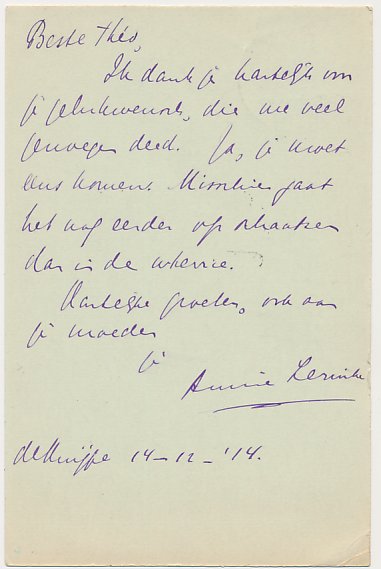 Beste Théo,
Ik dank je hartelijk voor
je gelukwensch, die me veel
genoegen deed. Ja, je moet
eens komen. Misschien gaat
het nog eerder op schaatsen
dan in de
Hartelijke groeten, ook aan
je moeder
je
Annie
de Knijpe 14-12-'14.